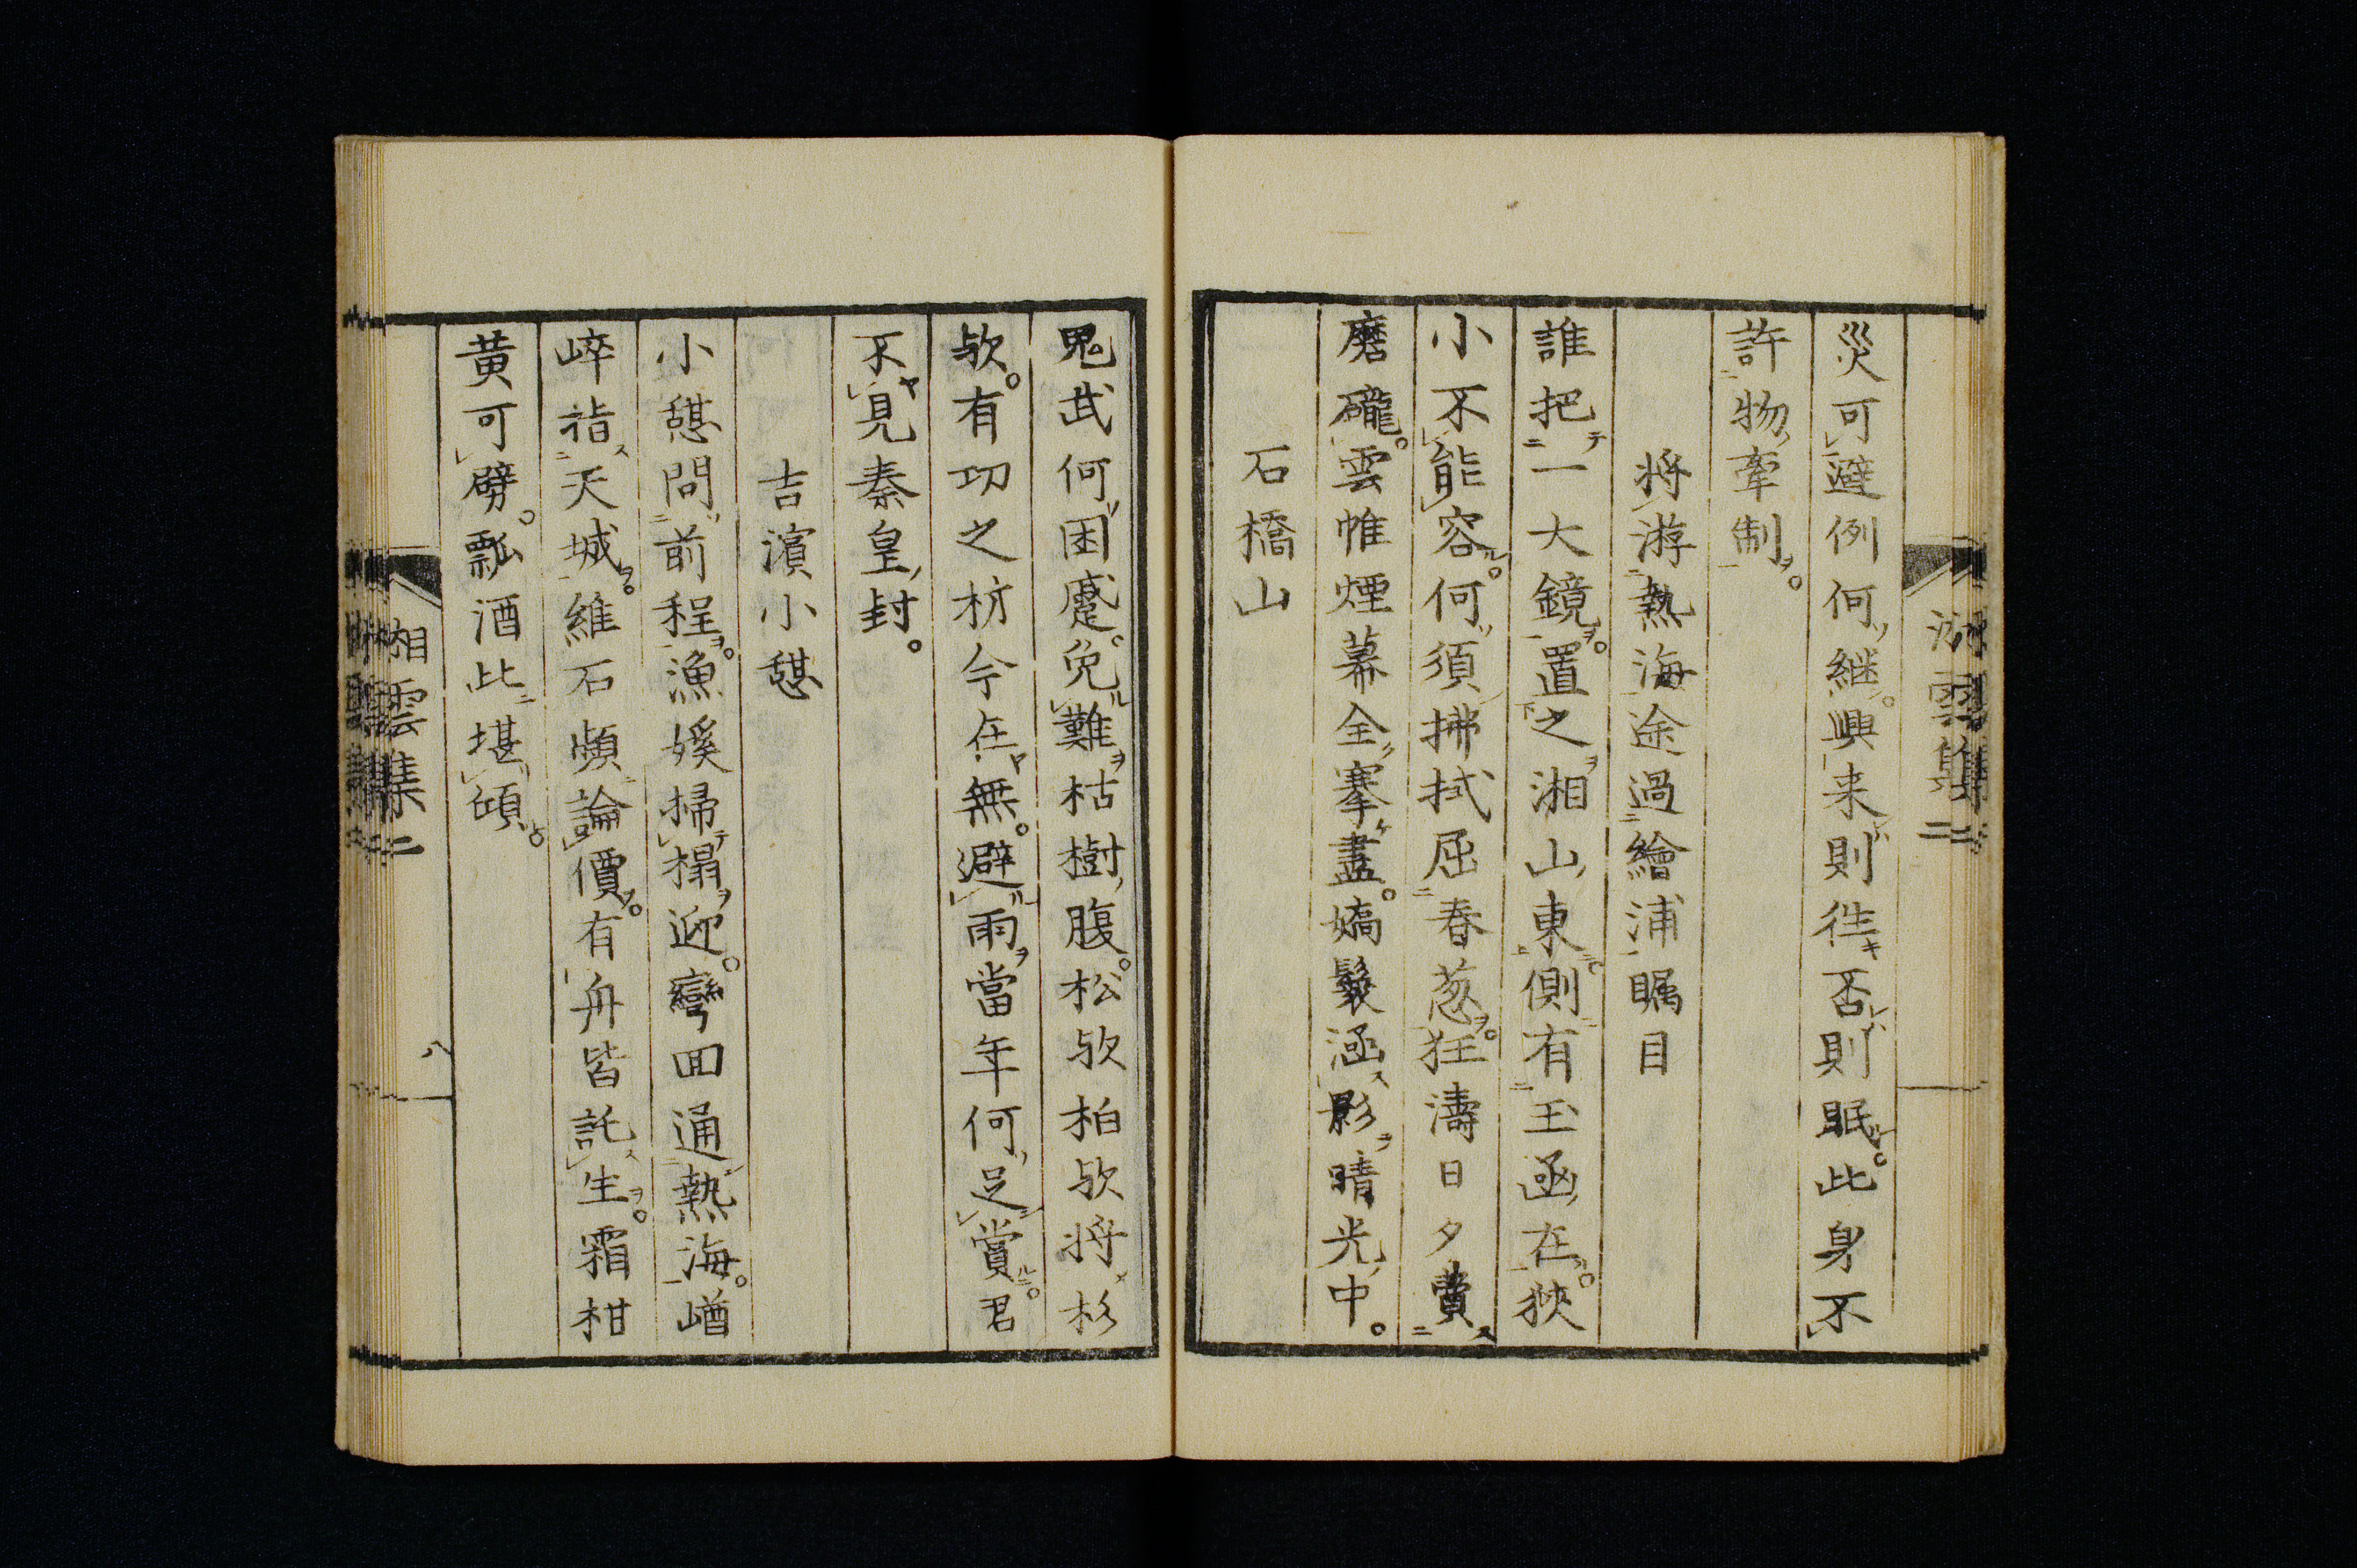 災可避例何継。興来則徃否則眠。此身不
許物牽制。
将游熱海途過繪浦矚目
誰把一大鏡。置之湘山東。側有玉函在。狹
小不能容。何須拂拭屈春葱。狂濤日夕費
磨礲。雲帷煙幕全搴盡。嬌鬟涵影晴光中。
石橋山
鬼武何困蹙。免難枯樹腹。松欤柏欤将杉
欤。有功之枋今在無。避雨當年何足賞。君
不見秦皇封。
吉濵小憩
小憩問前程。漁媄掃榻迎。彎囬通熱海。嶒
崪指天城。維石頻論價。有舟皆託生。霜柑
黄可劈。瓢酒此堪傾。
湘雲集二
八